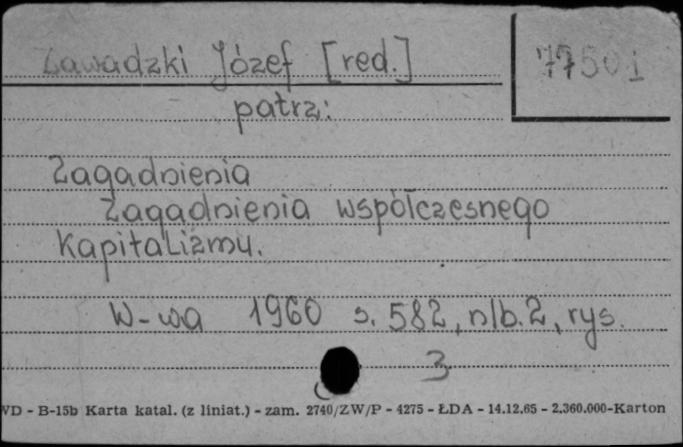 Zawadzki Józef [red.]
77501
patrz:
Zagadnienia
Zagadnienia współczesnego
kapitalizmu.
W-wa 1960 s. 582, nlb. 2, rys.
3
WD - B-15b Karta katal. (z liniat.) - zam. 2740/ZW/P - 4275 - ŁDA - 14.12.65 - 2.360.000-Karton